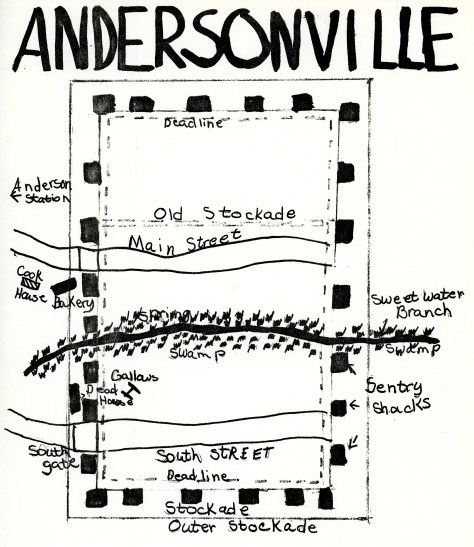 ANDERSONVILLE
Deadline
Anderson
Station
Old Stockade
Main Street
Cook
House
Bakery
Spring
Sweet Water
Branch
Swamp
Swamp
Gallows
Dead
House
Sentry
Shacks
South
gate
South STREET
Deadline
Stockade
Outer Stockade